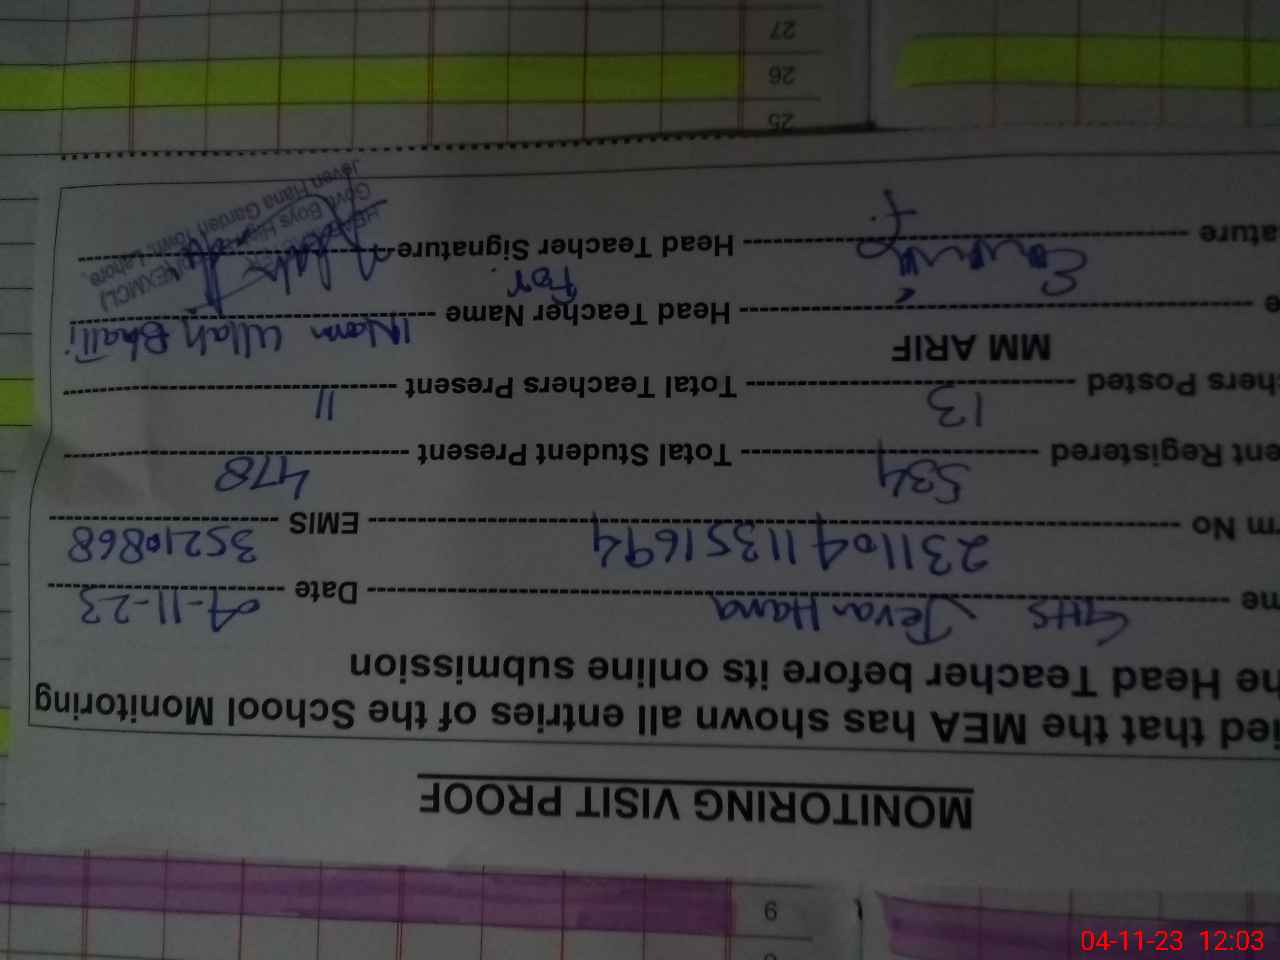 MONITORING VISIT PROOF
ied that the MEA has shown all entries of the School Monitoring
ne Head Teacher before its online submission
me GHS Jevan Hana Date 04-11-23
rm No 23110411351694 EMIS 35210868
ent Registered 534 Total Student Present 478
chers Posted 13 Total Teachers Present 11
MM ARIF
e Head Teacher Name Inam Ullah Bhatti
ature Head Teacher Signature
For
Govt Boys High
Jeven Hana Garden Town, Lahore.
25
26
27
9
04-11-23 12:03